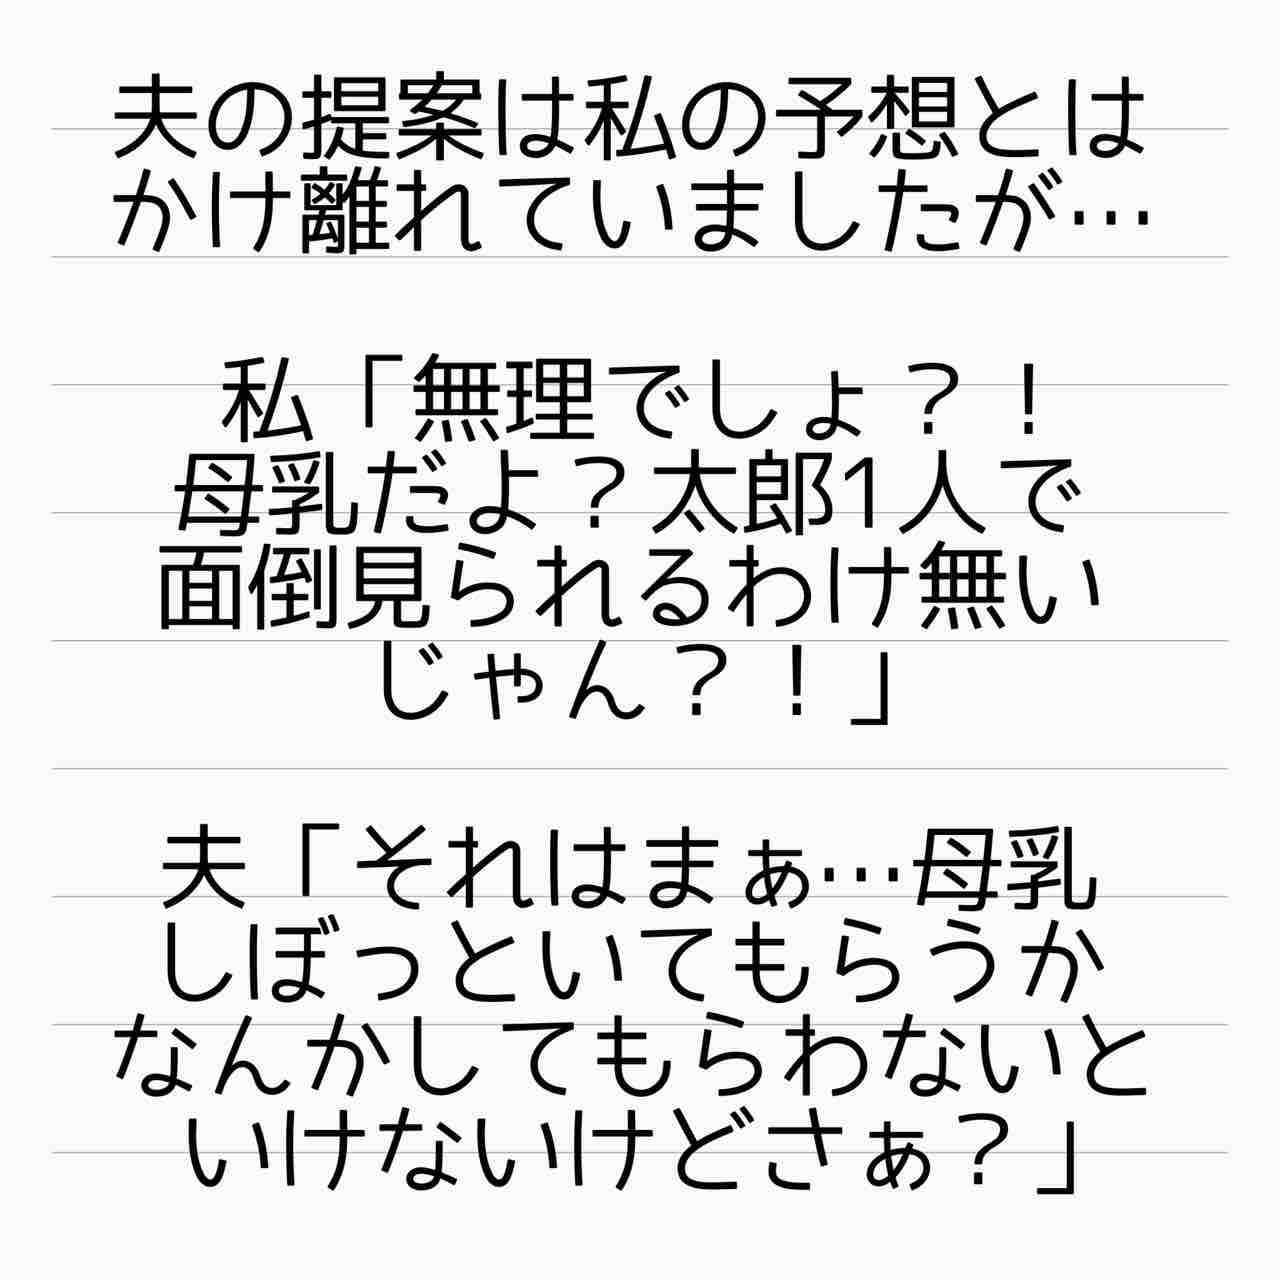 夫の提案は私の予想とは
かけ離れていましたが…
私「無理でしょ？！
母乳だよ？太郎1人で
面倒見られるわけ無い
じゃん？！」
夫「それはまぁ…母乳
しぼっといてもらうか
なんかしてもらわないと
いけないけどさぁ？」